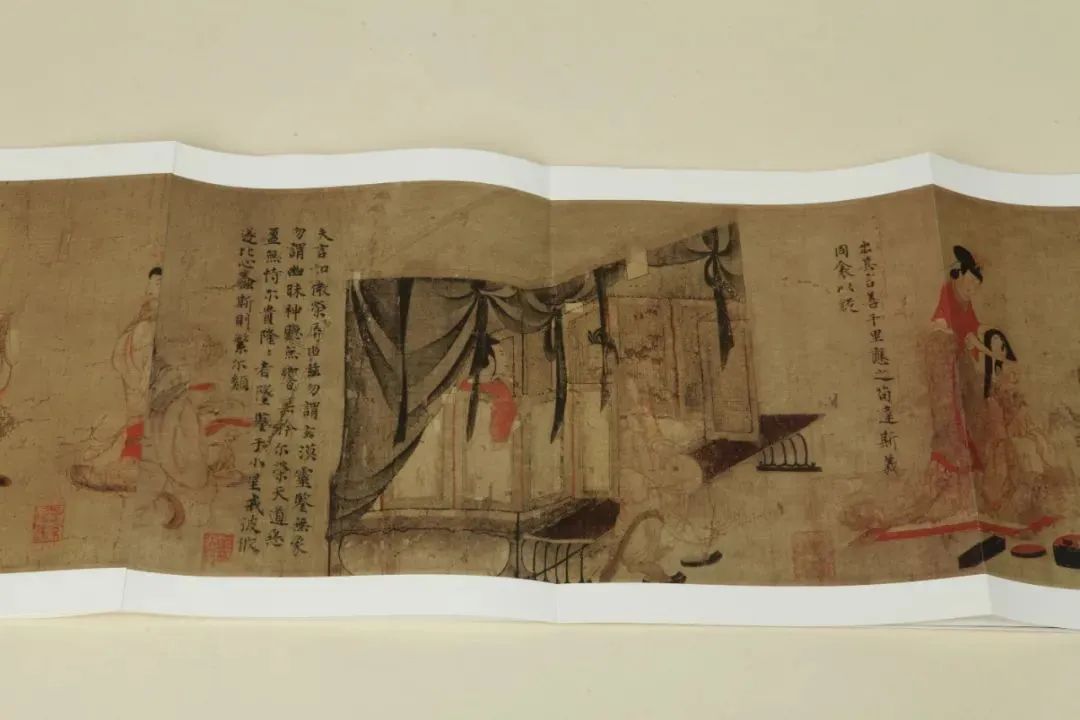 出其言善千里應之苟違斯義
同衾以疑
夫言如微榮辱由茲勿謂玄漠靈鑒無象
勿謂幽昧神聽無響無矜尔榮天道惡
盈無恃尔貴隆〻者墜鑒于小星戒彼攸
遂比心螽斯則繁尔類